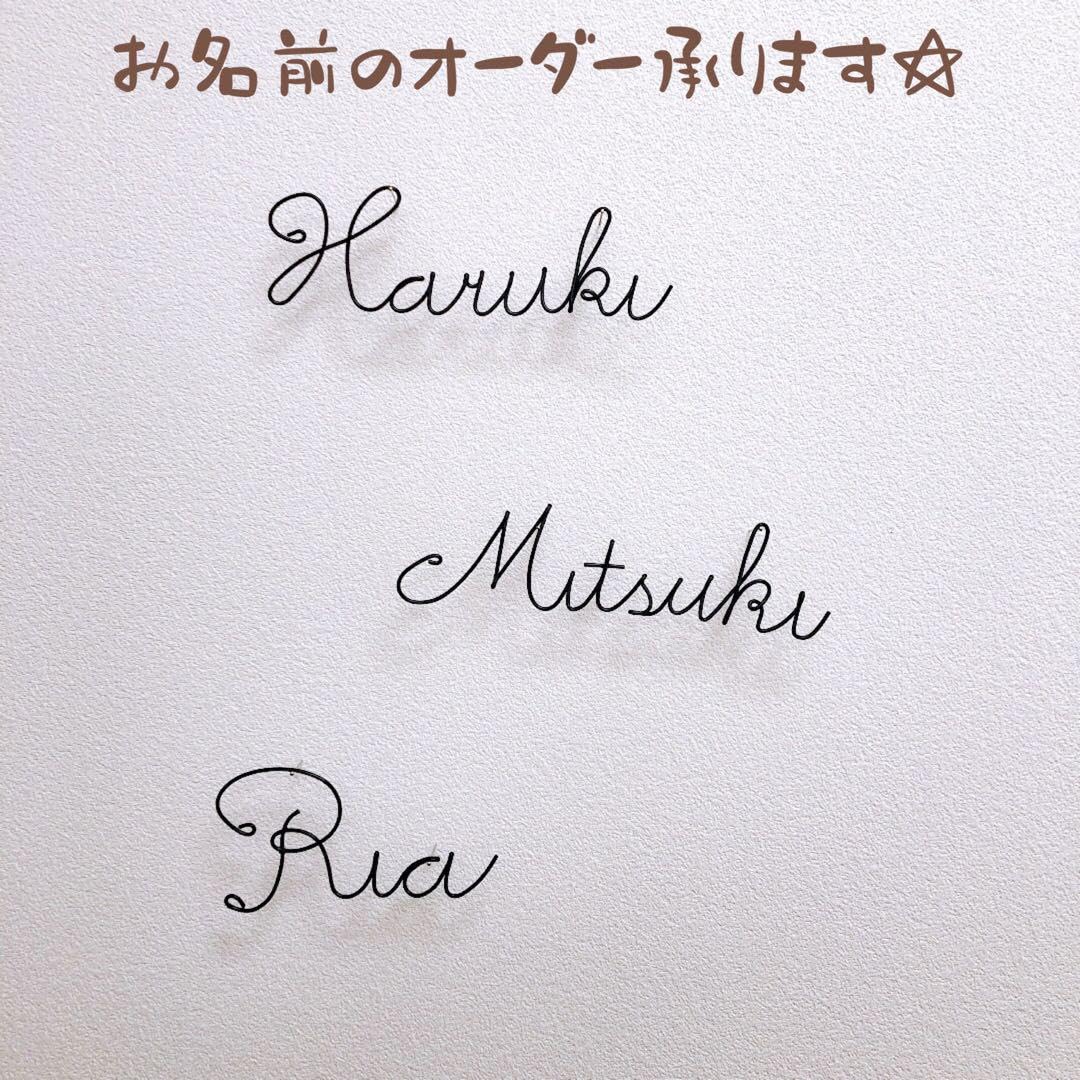 お名前のオーダー承ります☆
Haruki
Mitsuki
Ria